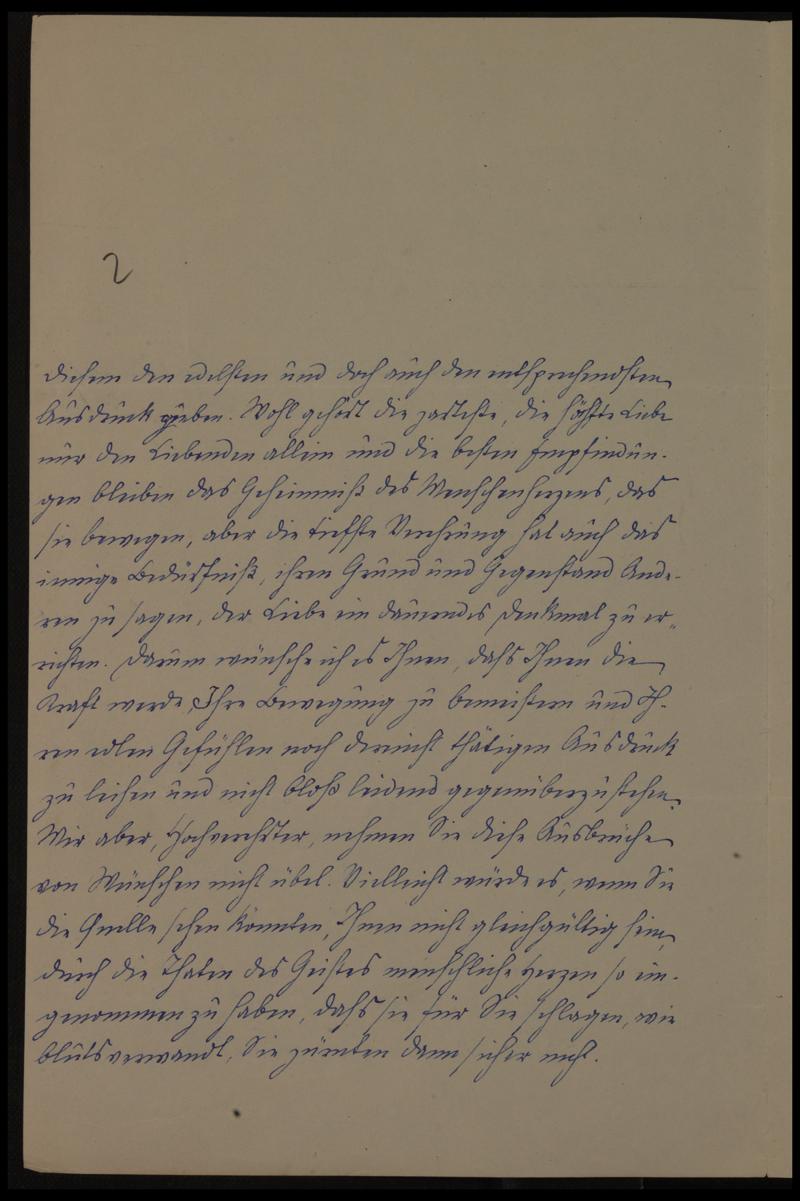 2
diesem den edelsten und doch auch den entsprechendsten
Ausdruck geben. Wohl gehört die zarteste, die höchste Liebe
nur den Liebenden allein und die besten Empfindun-
gen bleiben das Geheimniß des Menschenherzens, das
sie bewegen, aber die tiefste Verehrung hat auch das
innige Bedürfniß, ihren Grund und Gegenstand Ande-
ren zu sagen, der Liebe ein dauerndes Denkmal zu er-
richten. Darum wünsche ich es Ihnen, daß Ihnen die
Kraft werde, Ihre Bewegung zu bemeistern und Ih-
ren edlen Gefühlen noch dereinst thätigen Ausdruck
zu leihen und nicht bloß leidend gegenüberzustehen.
Mir aber, Hochverehrter, nehmen Sie diese Ausbrüche
von Wünschen nicht übel. Vielleicht würde es, wenn Sie
die Quelle sehen könnten, Ihnen nicht gleichgültig sein,
durch die Thaten des Geistes menschliche Herzen so ein-
genommen zu haben, daß sie für Sie schlagen, wie
blutsverwandt, Sie zürnten dann sicher nicht.